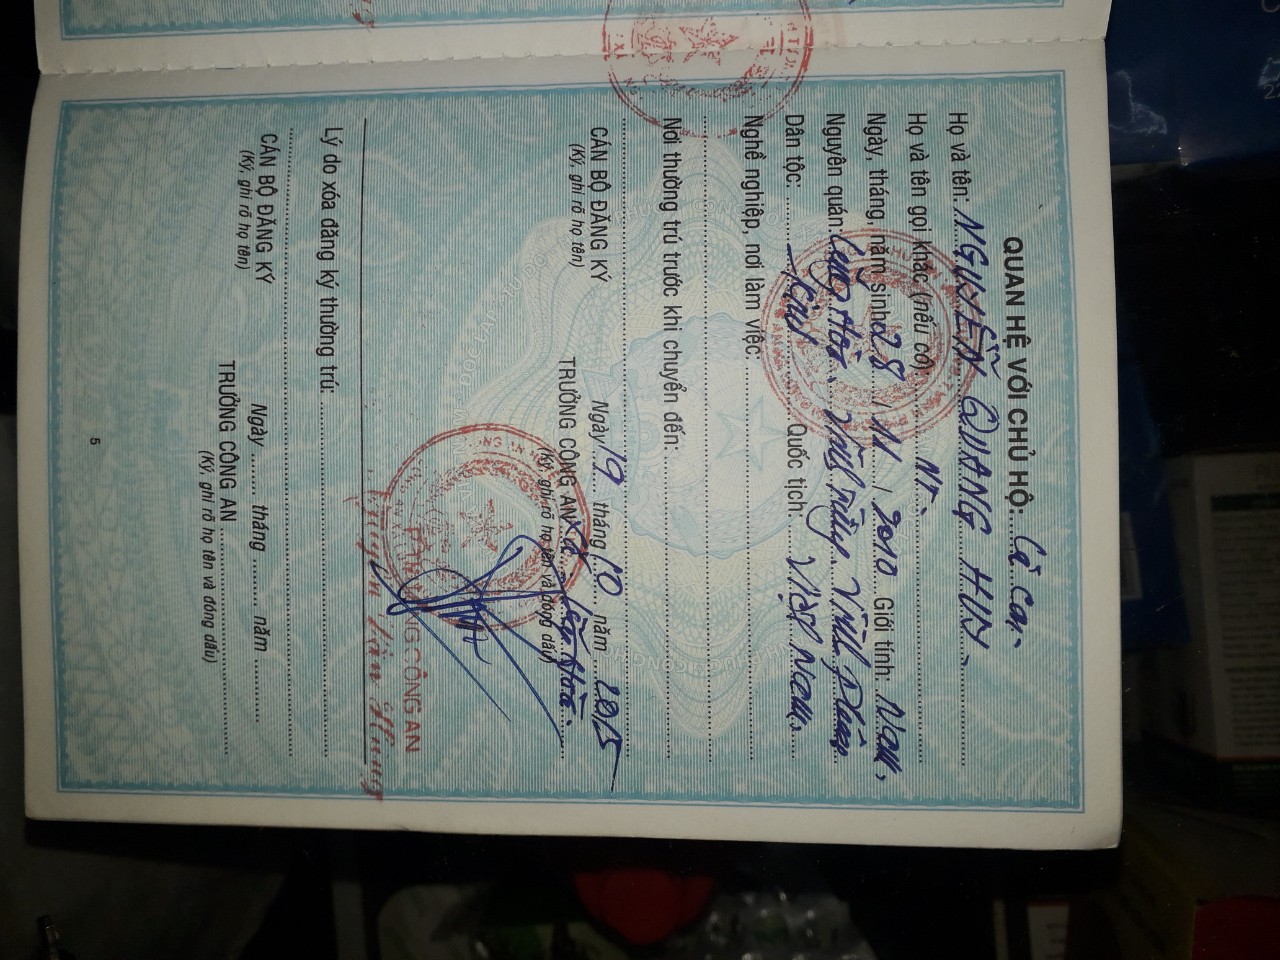 QUAN HỆ VỚI CHỦ HỘ: Cả con
Họ và tên: NGUYỄN QUANG HUY
Họ và tên gọi khác (nếu có)
Ngày, tháng, năm sinh: 28 / 11 / 2010 Giới tính: Nam
Nguyên quán: Vĩnh
Dân tộc: Kinh Quốc tịch: Việt Nam
Nghề nghiệp, nơi làm việc:
Nơi thường trú trước khi chuyển đến:
Ngày 19 tháng 10 năm 2015
CÁN BỘ ĐĂNG KÝ
(Ký, ghi rõ họ tên)
TRƯỞNG CÔNG AN
(Ký, ghi rõ họ tên và đóng dấu)
CÔNG AN
Hùng
Lý do xóa đăng ký thường trú:
Ngày ........ tháng ........ năm ........
CÁN BỘ ĐĂNG KÝ
(Ký, ghi rõ họ tên)
TRƯỞNG CÔNG AN
(Ký, ghi rõ họ tên và đóng dấu)
5